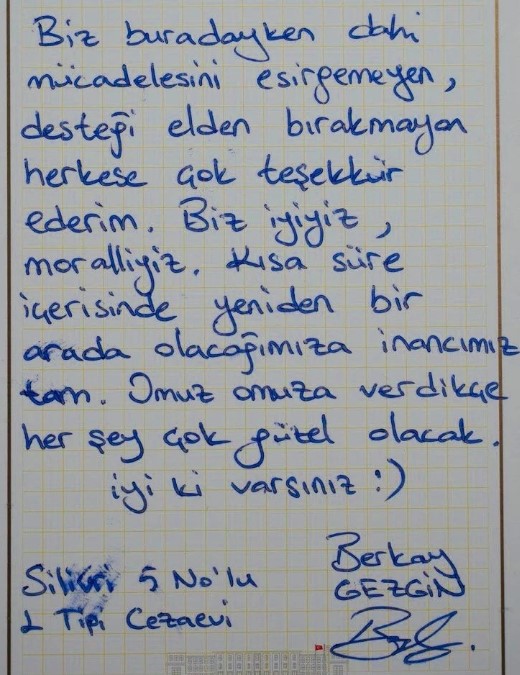 Biz buradayken dahi
mücadelesini esirgemeyen,
desteği elden bırakmayan
herkese çok teşekkür
ederim. Biz iyiyiz,
moralliyiz. Kısa süre
içerisinde yeniden bir
arada olacağımıza inancımız
tam. Omuz omuza verdikçe
her şey çok güzel olacak.
iyi ki varsınız :)
Berkay
Silivri 5 No'lu GEZGİN
L Tipi Cezaevi